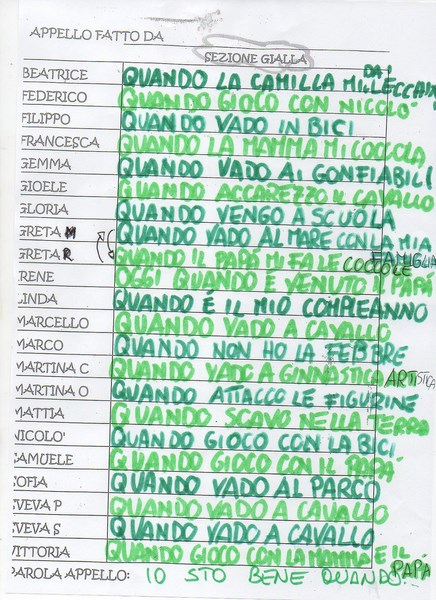 APPELLO FATTO DA
SEZIONE GIALLA
BEATRICE QUANDO LA CAMILLA MI DA I
FEDERICO QUANDO GIOCO CON NICOLO'
FILIPPO QUANDO VADO IN BICI
FRANCESCA QUANDO LA MAMMA MI COCCOLA
GEMMA QUANDO VADO AI GONFIABILI
GIOELE QUANDO ACCAREZZO IL CAVALLO
GLORIA QUANDO VENGO A SCUOLA
GRETA M QUANDO VADO AL MARE CON LA MIA FAMIGLIA
GRETA R QUANDO IL PAPÁ MI FA LE COCCOLE
IRENE OGGI QUANDO É VENUTO IL PAPÁ
LINDA QUANDO É IL MIO COMPLEANNO
MARCELLO QUANDO VADO A CAVALLO
MARCO QUANDO NON HO LA FEBBRE
MARTINA C QUANDO VADO A GINNASTICA ARTISTICA
MARTINA O QUANDO ATTACCO LE FIGURINE
MATTIA QUANDO SCAVO NELLA TERRA
NICOLO' QUANDO GIOCO CON LA BICI
SAMUELE QUANDO GIOCO CON IL PAPÁ
SOFIA QUANDO VADO AL PARCO
SVEVA P QUANDO VADO A CAVALLO
SVEVA S QUANDO VADO A CAVALLO
VITTORIA QUANDO GIOCO CON LA MAMMA E IL PAPÁ
PAROLA APPELLO: IO STO BENE QUANDO...